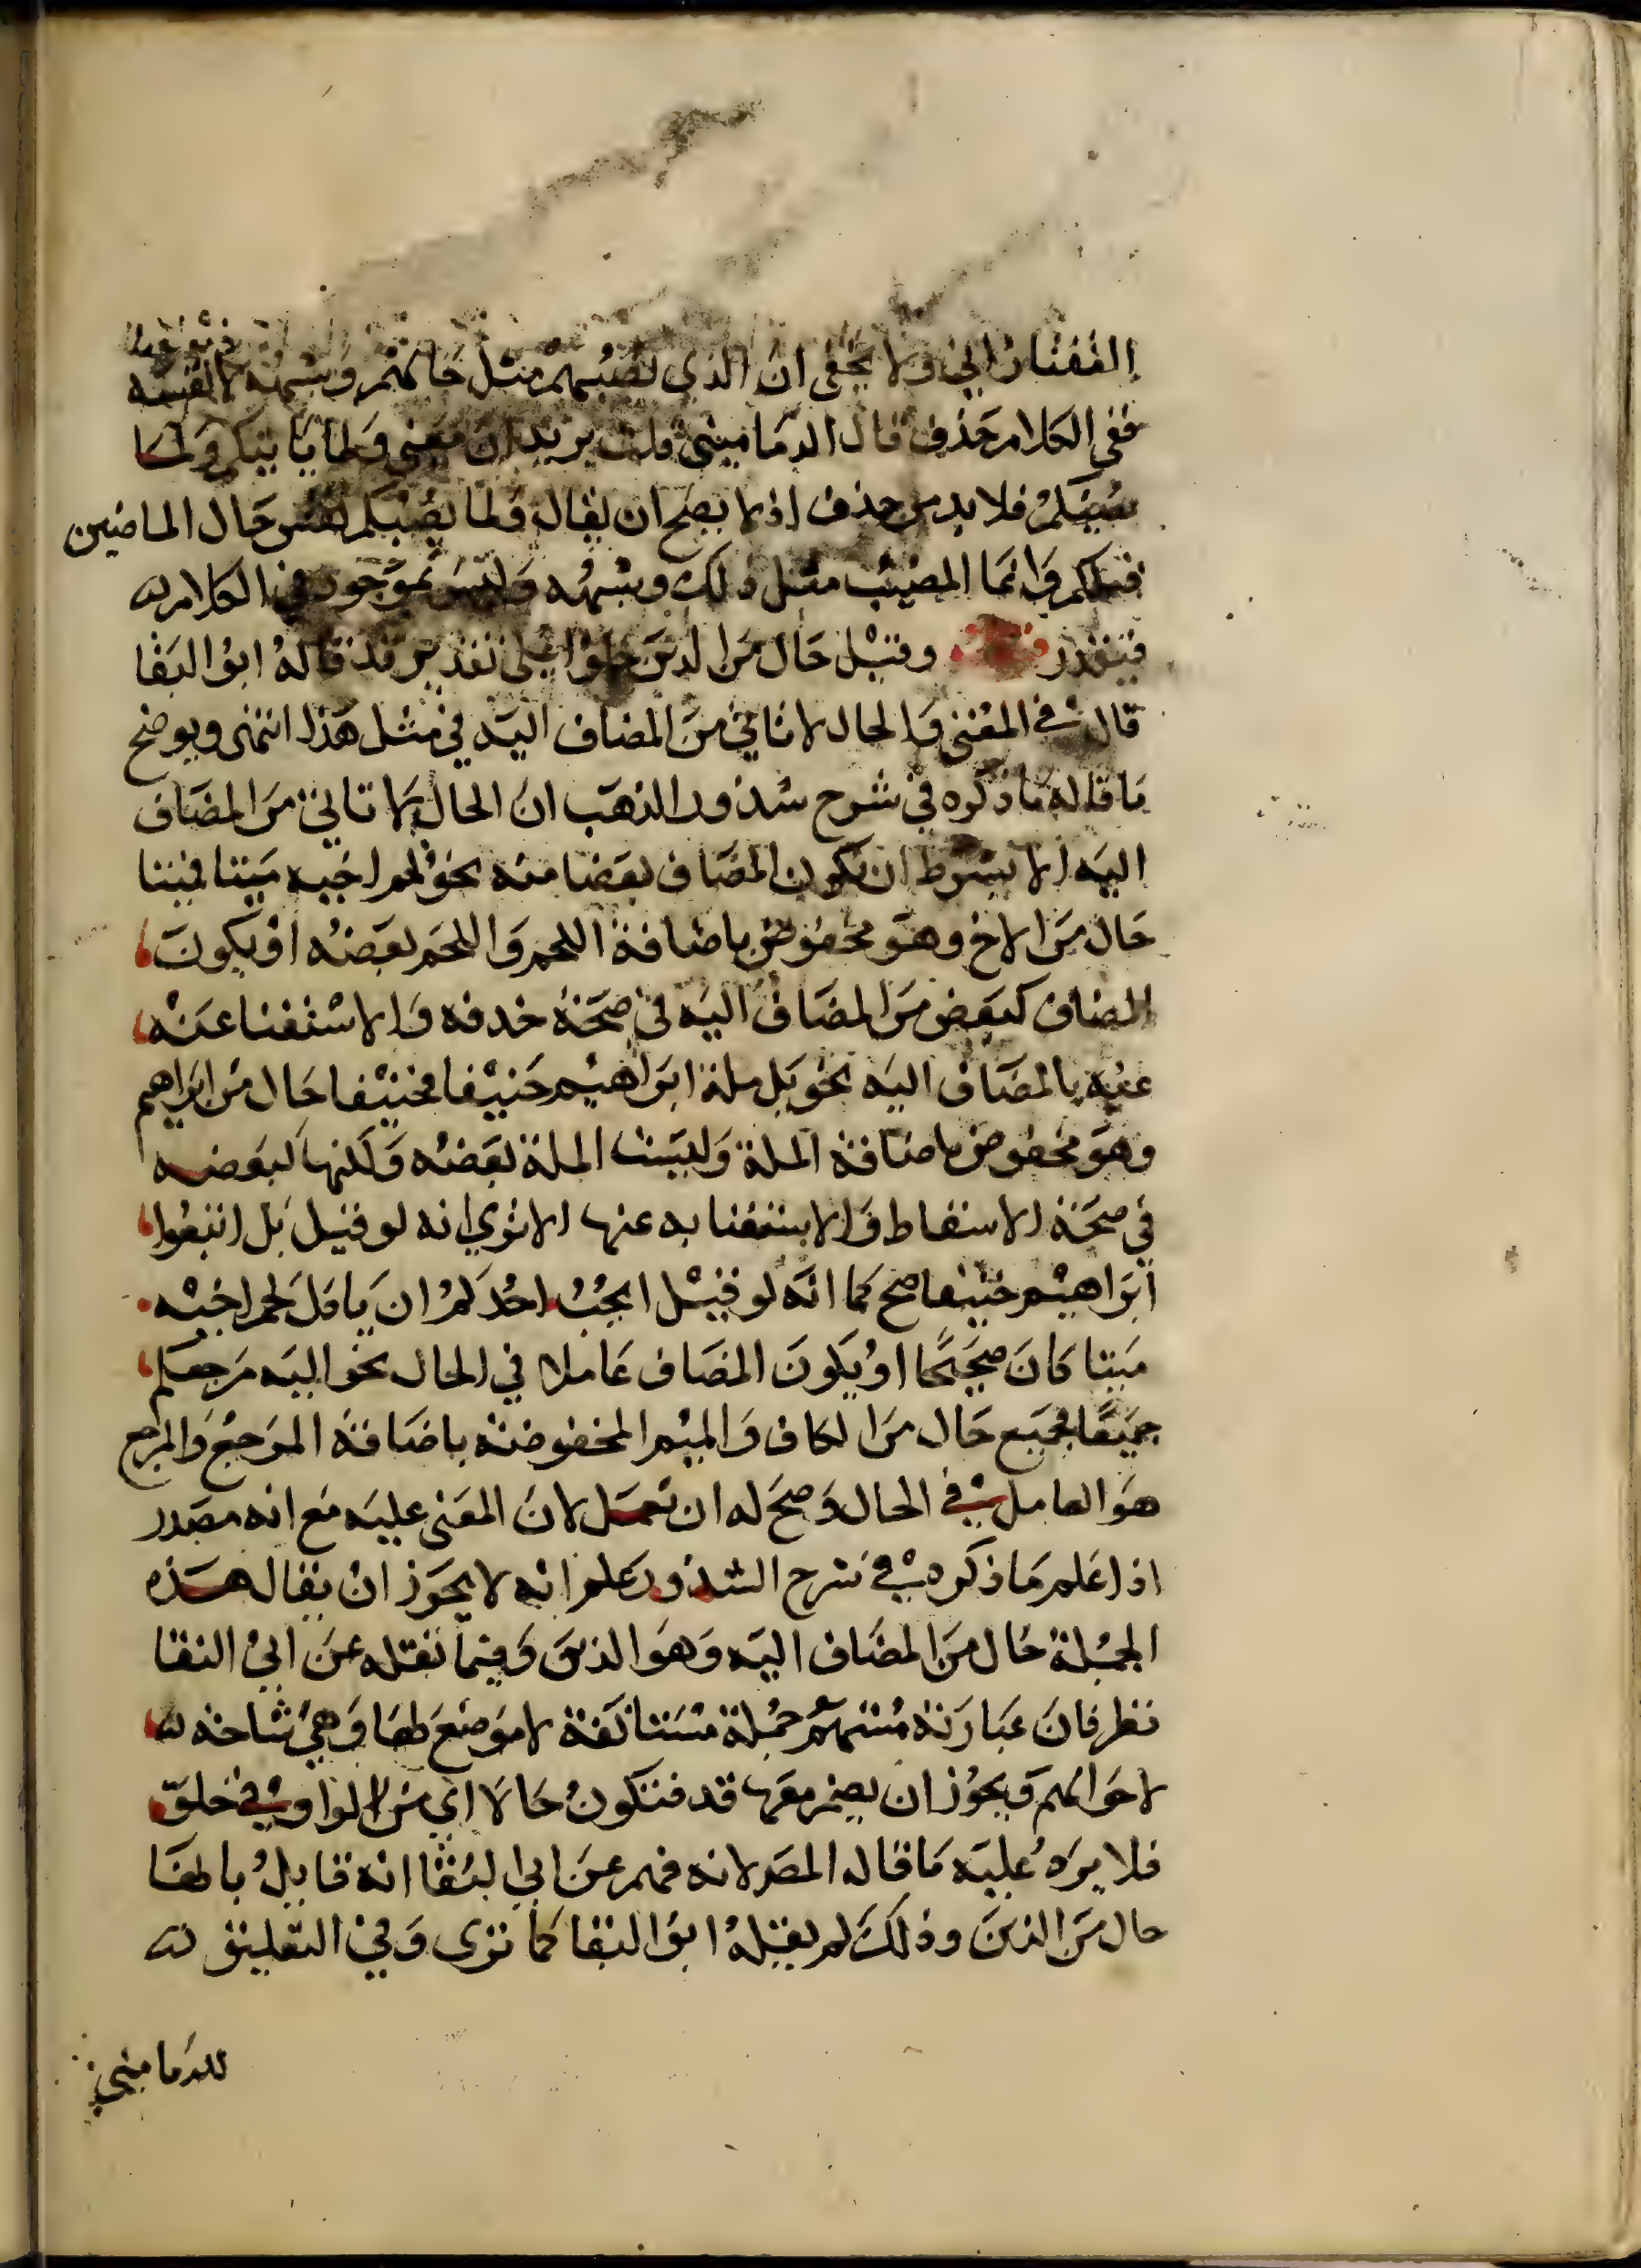 التفتازاني ولا يخفى ان الذي نصيبهم مثل حالهم وشبهه لا نفسه
ففي الكلام حذف قال الدماميني قلت يريد ان معنى ولما ياتيكم ولما
يصيبكم فلا بد من حذف اذ لا يصح ان يقال ولما يصيبكم نفس حال الماضين
قبلكم وانما المصيب مثل ذلك وشبهه وليس بموجود في الكلام
فيتقدر وقيل حال من الذين خلوا على تقدير قد قاله ابو البقا
قال في المغني والحال لا تاتي من المضاف اليه في مثل هذا انتهى ويوضح
ما قاله ما ذكره في شرح شذور الذهب ان الحال لا تاتي من المضاف
اليه الا بشرط ان يكون المضاف بعضا منه نحو لحم اخيه ميتا فميتا
حال من الاخ وهو مخفوض باضافة اللحم واللحم بعضه او يكون
المضاف كبعض من المضاف اليه في صحة حذفه والاستغنا عنه
عنه بالمضاف اليه نحو بل ملة ابراهيم حنيفا فحنيفا حال من ابراهيم
وهو مخفوض باضافة الملة وليست الملة بعضه ولكنها كبعضه
في صحة الاسقاط والاستغنا به عنها الا ترى انه لو قيل بل اتبعوا
ابراهيم حنيفا صح كما انه لو قيل ايحب احدكم ان ياكل لحم اخيه
ميتا كان صحيحا او يكون المضاف عاملا في الحال نحو اليه مرجعكم
جميعا فجميع حال من الكاف والميم المخفوضة باضافة المرجع والمرجع
هو العامل في الحال وصح له ان تعمل لان المعنى عليه مع انه مصدر
اذا علم ما ذكره في شرح الشذور علم انه لا يجوز ان يقال هذه
الجملة حال من المضاف اليه وهو الذين وفيما نقله عن ابي البقا
نظر فان عبارته مستهم جملة مستانفة لا موضع لها وهي شارحة
لاحوالهم ويجوز ان يضمر معها قد فتكون حالا اي من الواو في خلو
فلا يرد عليه ما قاله المص لانه فهم عن ابي البقا انه قايل بانها
حال من الذين وذلك لم يقله ابو البقا كما ترى وفي التعليق
للدماميني